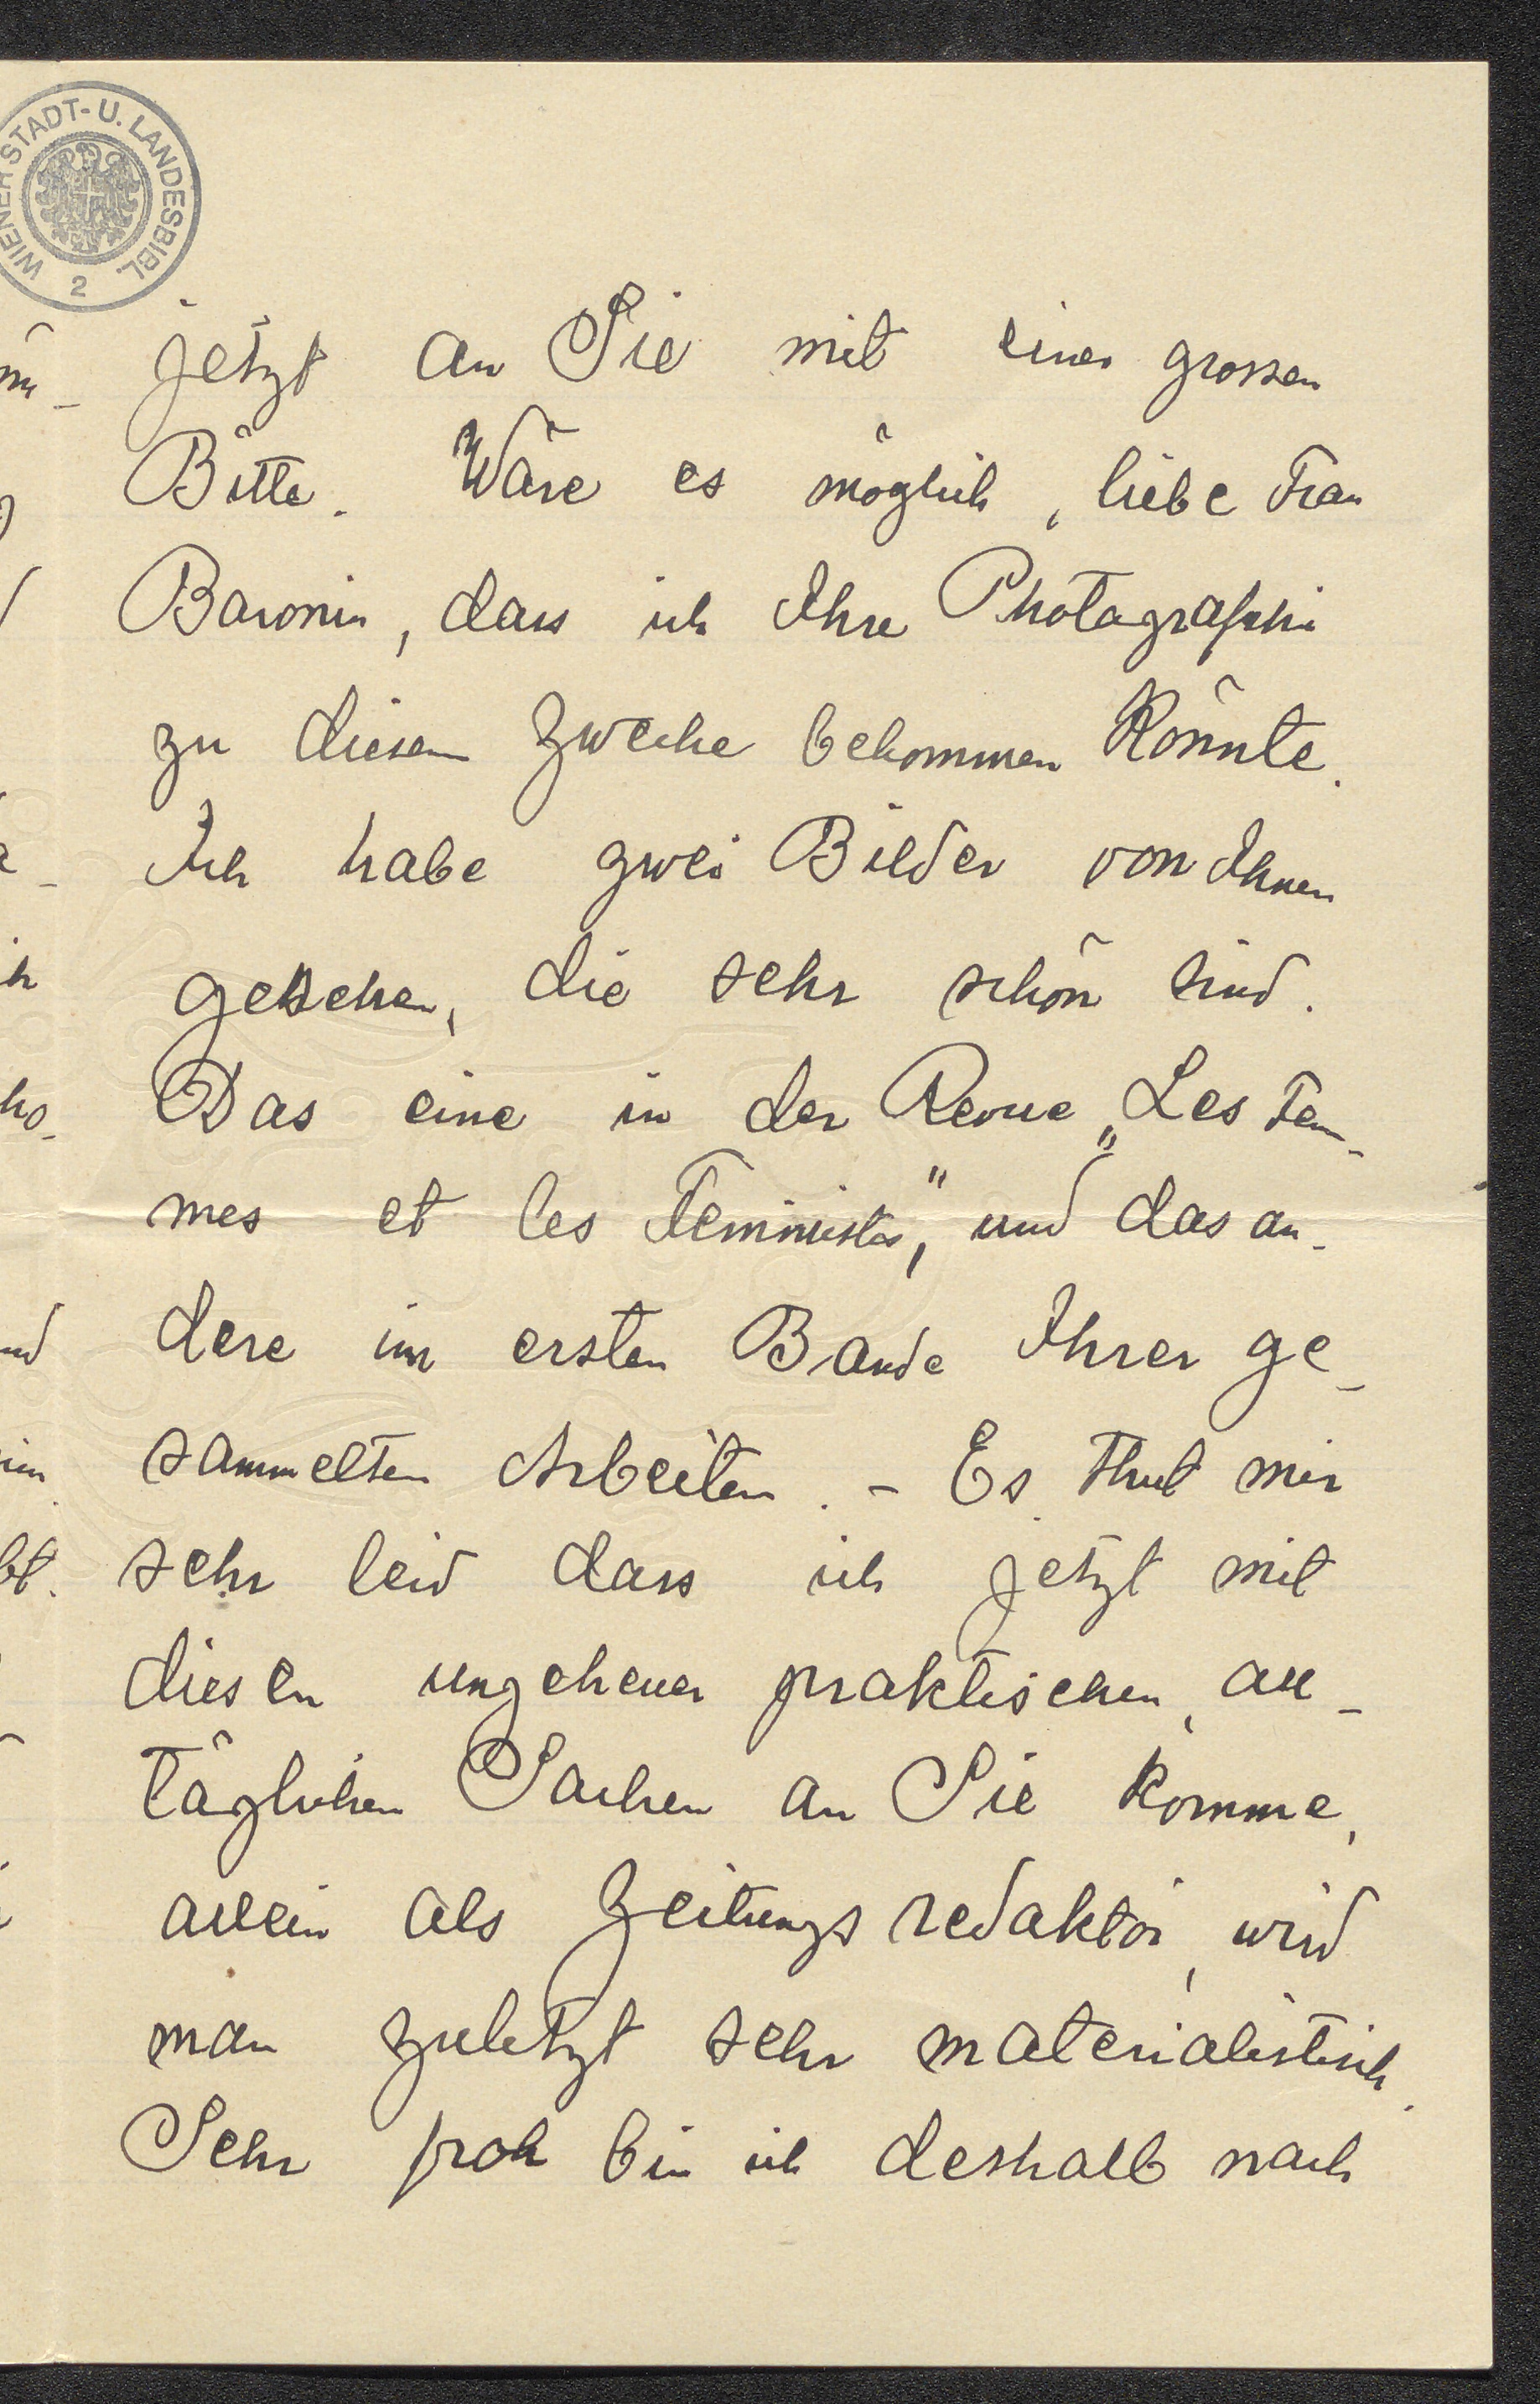 WIENER STADT- U. LANDESBIBL.
2
jetzt an Sie mit einer grossen
Bitte. Wäre es möglich, liebe Frau
Baronin, dass ich Ihre Photographie
zu diesem Zwecke bekommen könnte.
Ich habe zwei Bilder von Ihnen
gesehen, die sehr schön sind.
Das eine in der Revue „Les Fem-
mes et les Feministes", und das an-
dere im ersten Bande Ihrer ge-
sammelten Arbeiten. - Es thut mir
sehr leid dass ich jetzt mit
diesen ungeheuer praktischen, all-
täglichen Sachen an Sie komme,
allein als Zeitungsredaktör, wird
man zuletzt sehr materialistisch.
Sehr froh bin ich deshalb nach